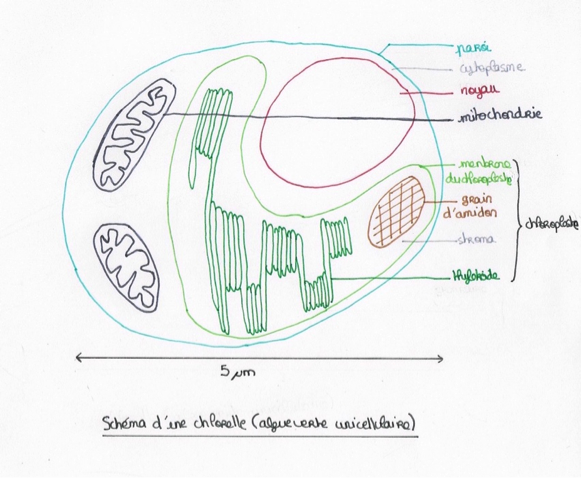 paroi
cytoplasme
noyau
mitochondrie
membrane
du chloroplaste
grain
d'amidon
chloroplaste
stroma
thylakoïde
5 µm
Schéma d'une chlorelle (algue verte unicellulaire)